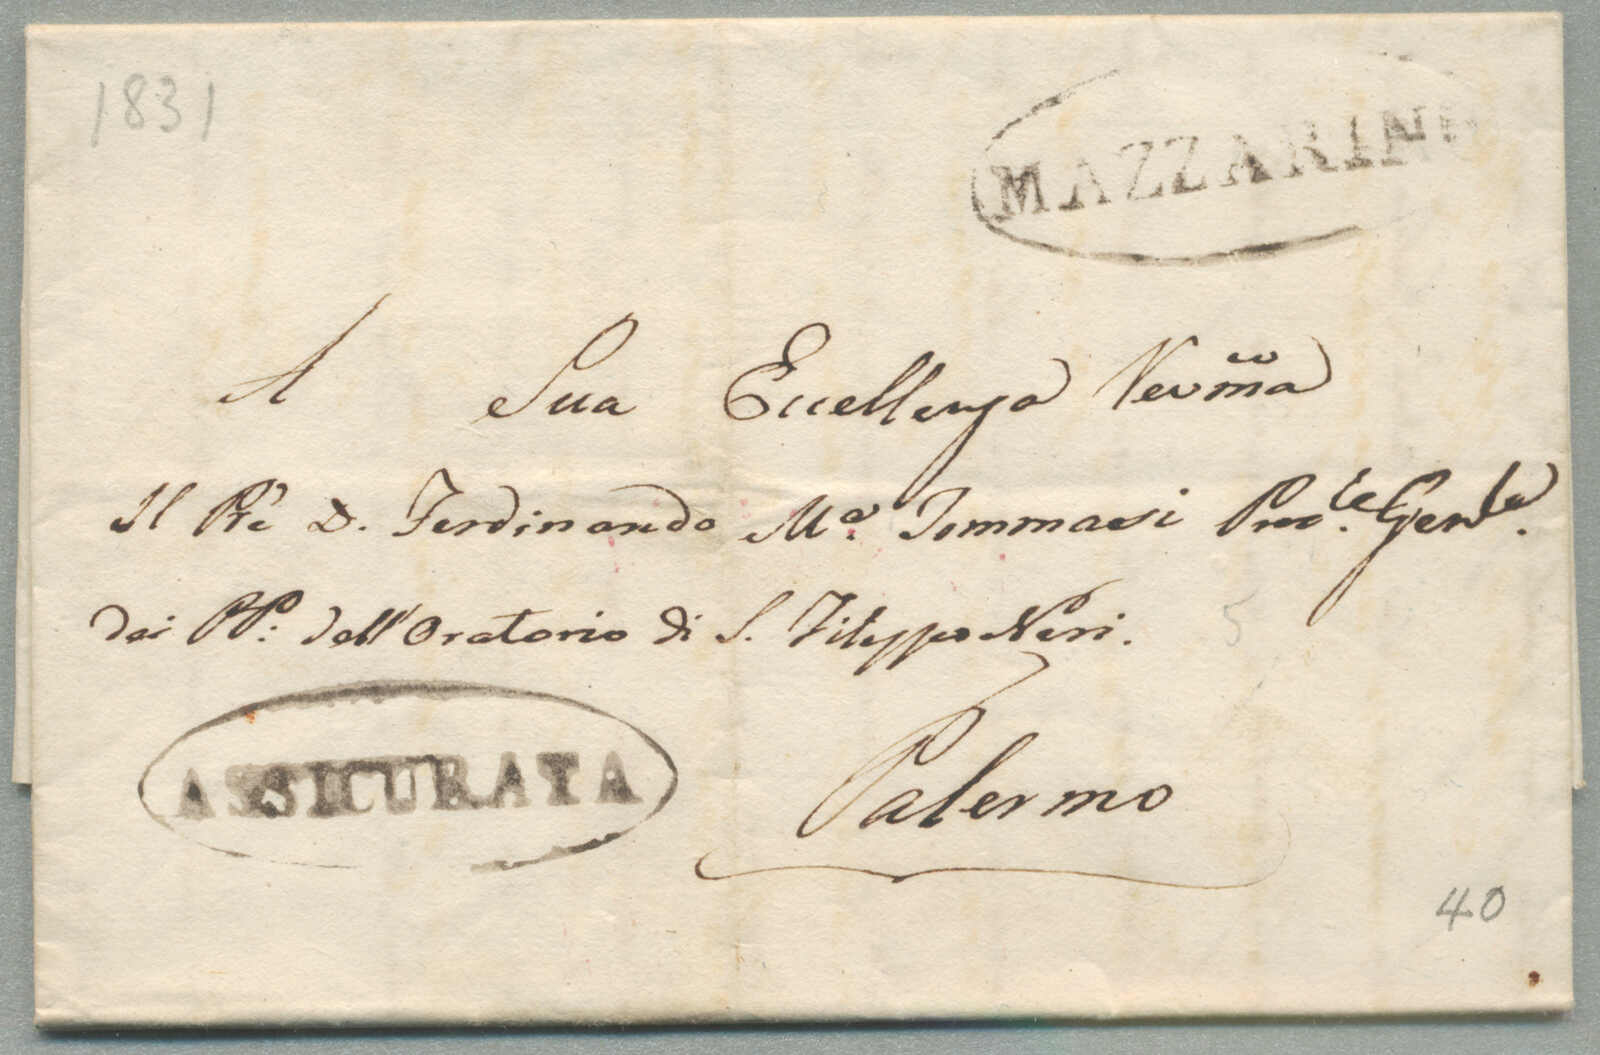 1831
MAZZARINO
A Sua Eccellenza Revma
Il Pre D. Ferdinando Ma. Tommasi Genle.
dei PP: dell'Oratorio di S. Filippo Neri.
5
ASSICURATA
Palermo
40